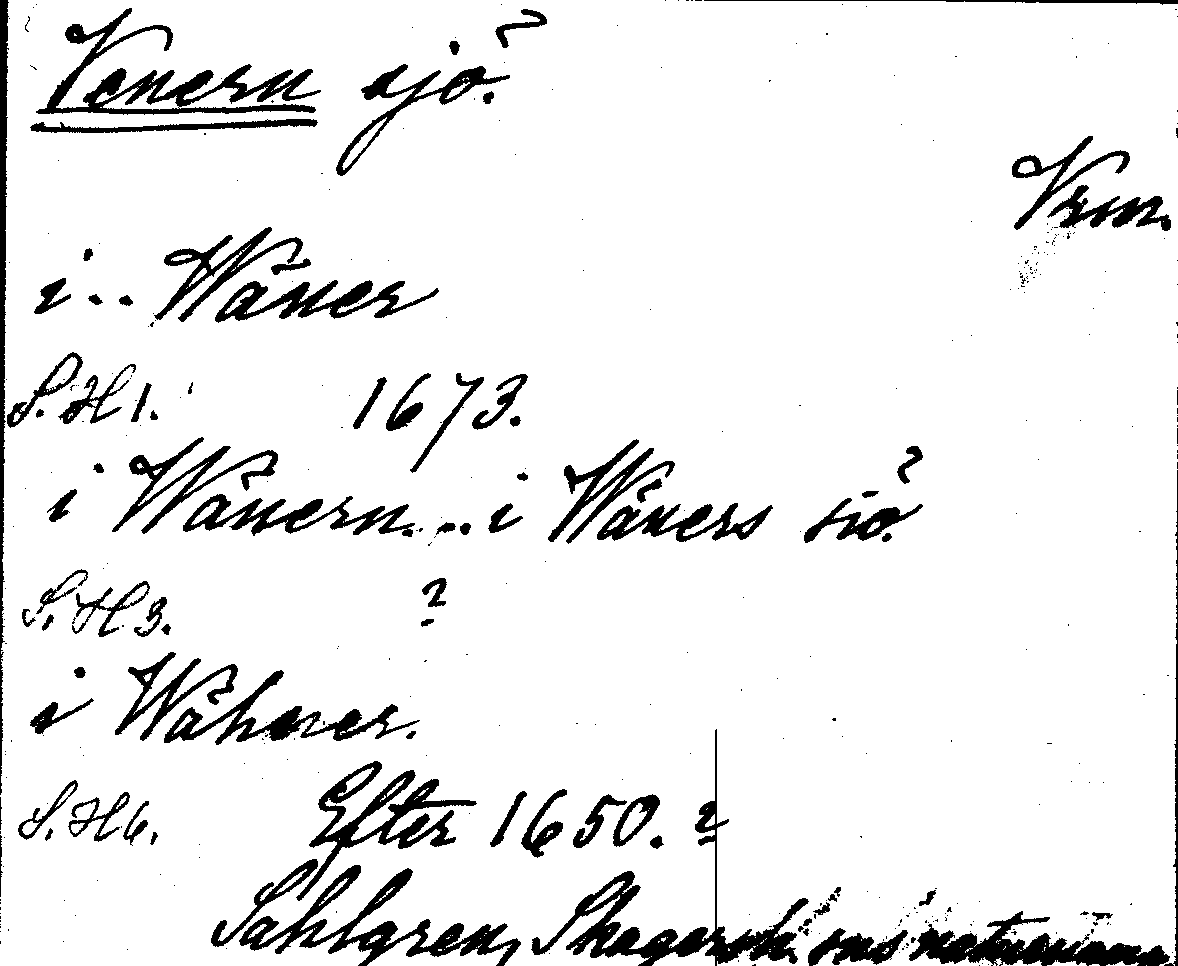 Venern sjö?
Vrm.
i .. Wäner
S. H 1. 1673.
i Wänern ... i Wäners siö?
S. H 3. ?
i Wähner.
S. H 6. Efter 1650. ?
Sahlgren, Skagersh. sns naturnamn